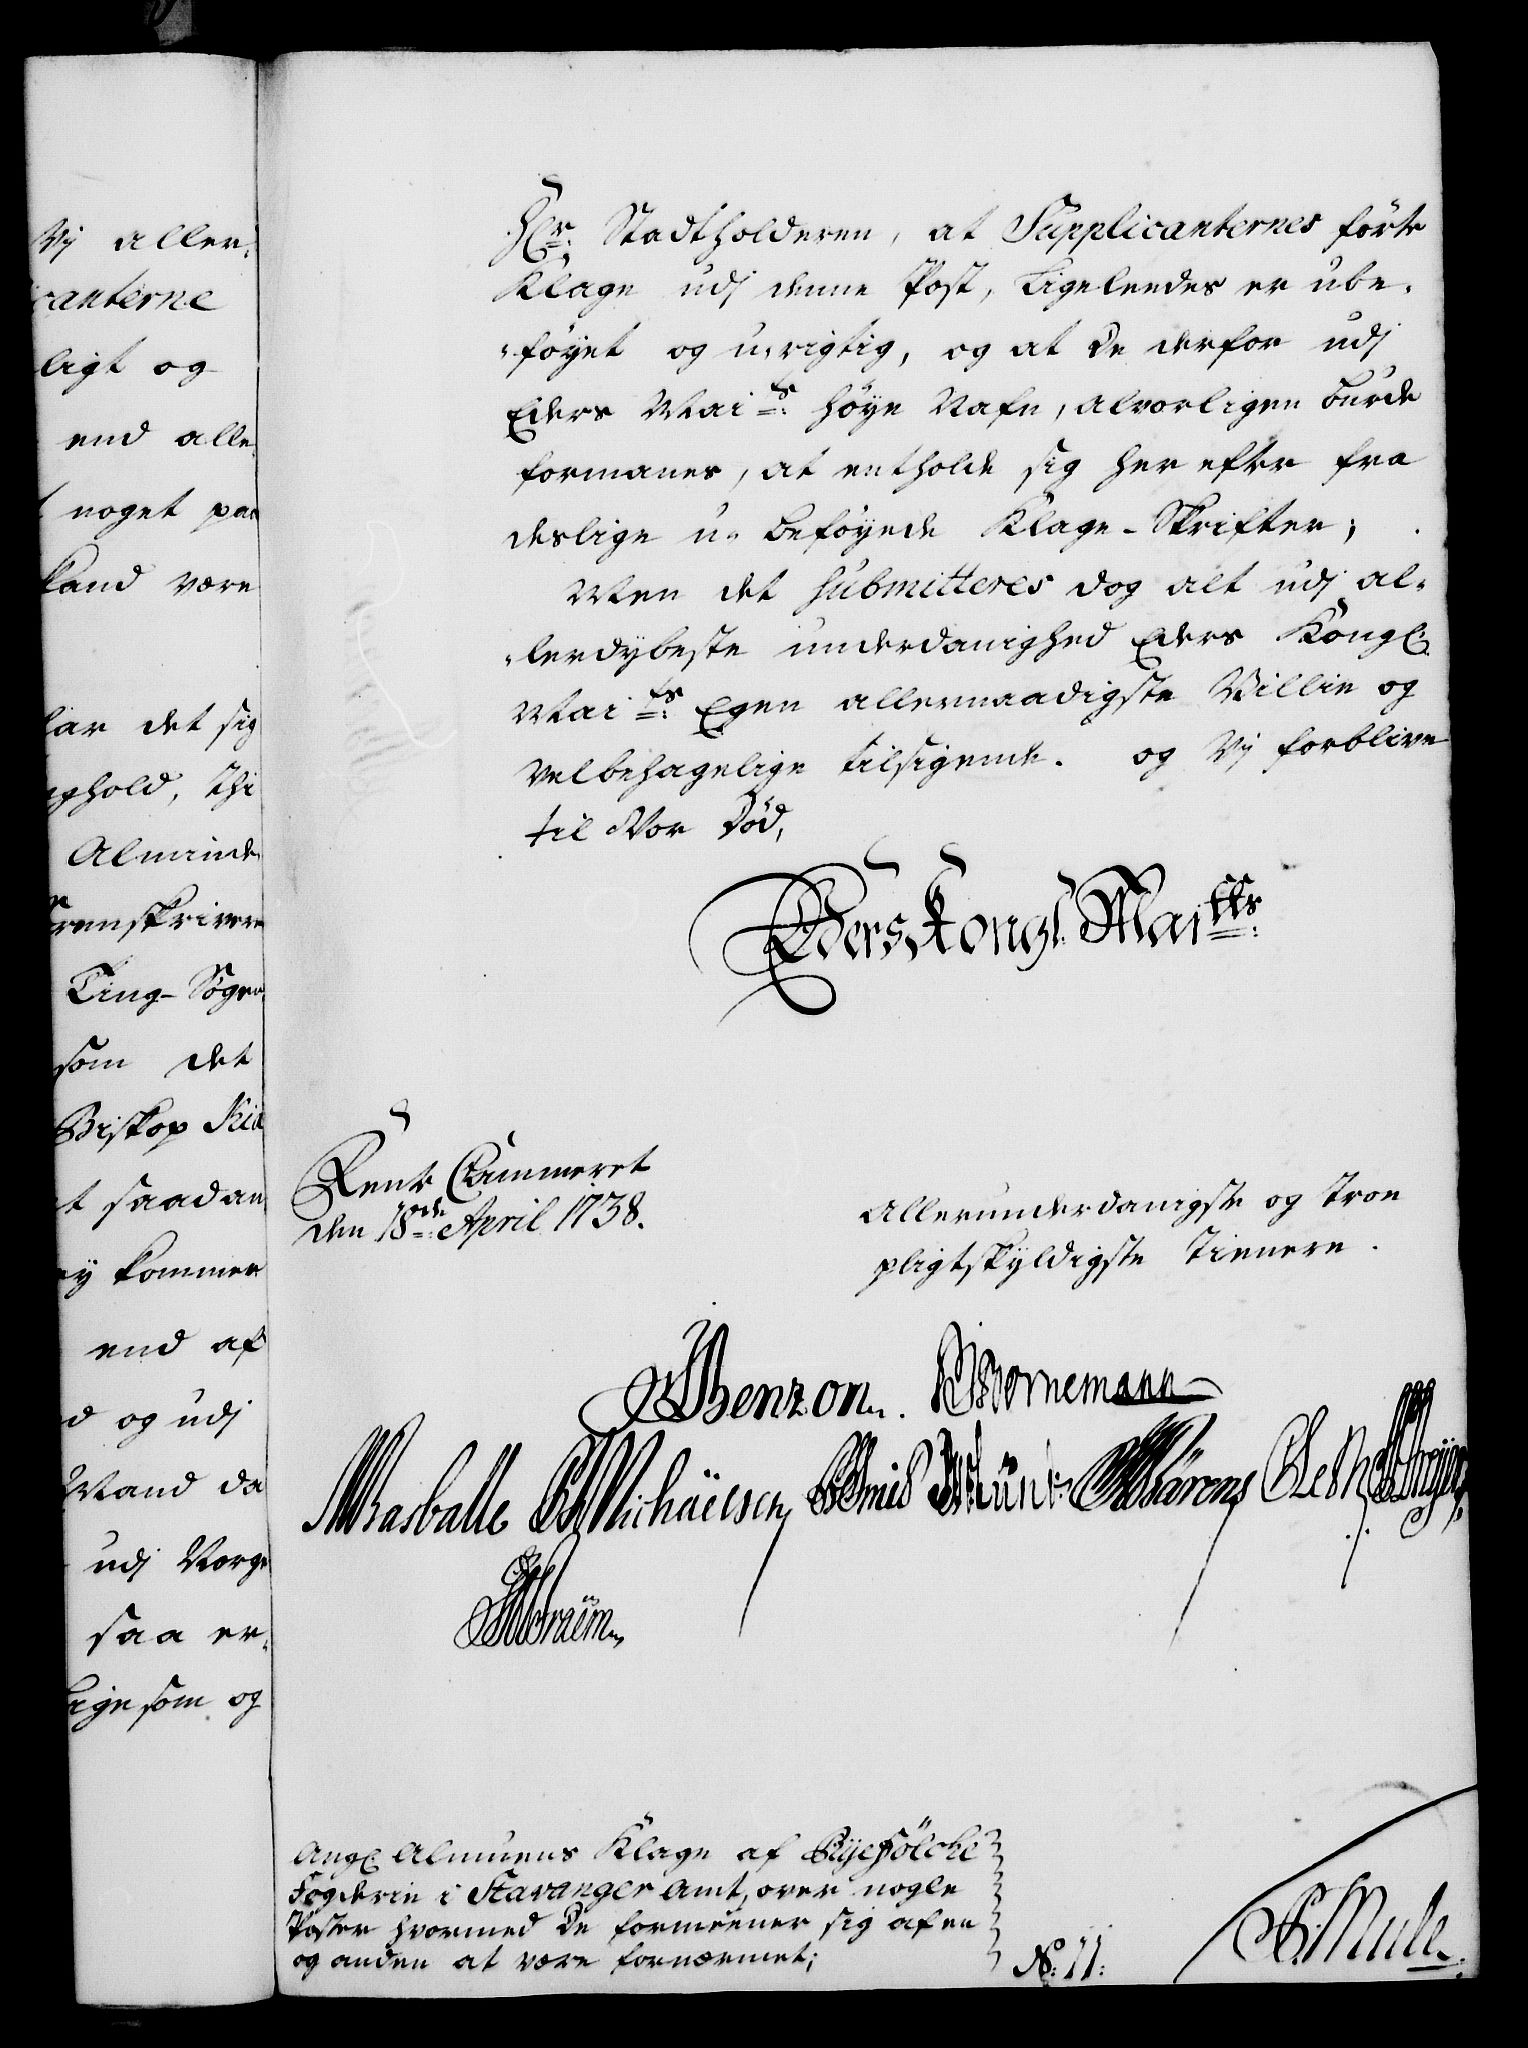 Vj aller,
canterne
ligt og
end alle
noget paa
kand være
lar det sig
ghold, thi
Alminde
renskrivere
Ting-Sogne
som det
Biskop
t saadan
ey kommer
end af
d og udj
Mand da
udj Norge
saa er,
lige som og
Hr: Stadtholderen, at Supplicanternes förte
Klage udj denne Post, ligeleedes er ube-
föyet og u-rigtig, og at De derfor udj
Eders Maits: höye Nafn, alvorligen burde
formanes, at entholde sig her efter fra
deslige u-beföyede Klage-Skrifter;
Men det submitteres dog alt udj al-
lerdybeste underdanighed Eders Kongl:
Maits: Egen allernaadigste Villie og
velbehagelige tilsigende. og Vj forblive
til Vor Död,
Eders Kongl: Maitts:
Rente Cammeret
den 18de: April 1738.
Allerunderdanigste og troe
pligtskyldigste Tienere.
Benzon. Bornemann
Rasballe Michäelsen
Angl: Almuens Klage af Rÿefölcke
Fogderie i Stavanger Amt, over nogle
Poster hvormed De formeener sig af en
og anden at være fornærmet;
No: 11:
Mule